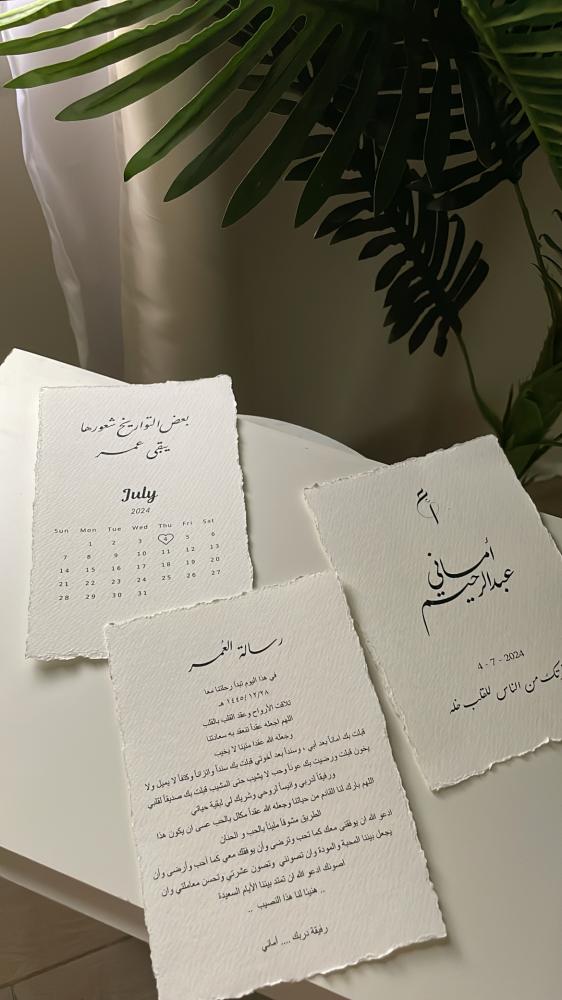 بعض التواريخ شعورها
يبقى عمر
July
2024
Sun Mon Tue Wed Thu Fri Sat
1 2 3 4 5 6
7 8 9 10 11 12 13
14 15 16 17 18 19 20
21 22 23 24 25 26 27
28 29 30 31
أماني
عبدالرحيم
4 - 7 - 2024
من الناس للقلب خله
رسالة العُمر
في هذا اليوم تبدأ رحلتنا معا
١٤٤٥/١٢/٢٨ هـ
تلاقت الأرواح وعقد القلب بالقلب
اللهم اجعله عقداً تنعقد به سعادتنا
وجعله الله عقدا متينا لا يخيب
قبلت بك اماناً بعد أبي ، وسنداً بعد أخوتي قبلت بك سنداً واتزاناً وكتفاً لا يميل ولا
يخون قبلت ورضيت بك عوناً وحب لا يشيب حتى المشيب قبلت بك صديقاً لقلبي
ورفيقاً لدربي وانيساً لروحي وشريك لي لبقية حياتي
اللهم بارك لنا القادم من حياتنا وجعله الله عقداً مكلل بالحب عسى ان يكون هذا
الطريق مشوقاً مليئاً بالحب و الحنان
ادعو الله ان يوفقني معك كما تحب وترضى وأن يوفقك معي كما أحب وأرضى وأن
يجعل بيننا المحبة والمودة وان تصونني وتصون عشرتي وتحسن معاملتي وان
اصونك ادعو الله ان تمتد بيننا الأيام السعيدة
.. هنيئا لنا هذا النصيب ..
رفيقة دربك .... أماني